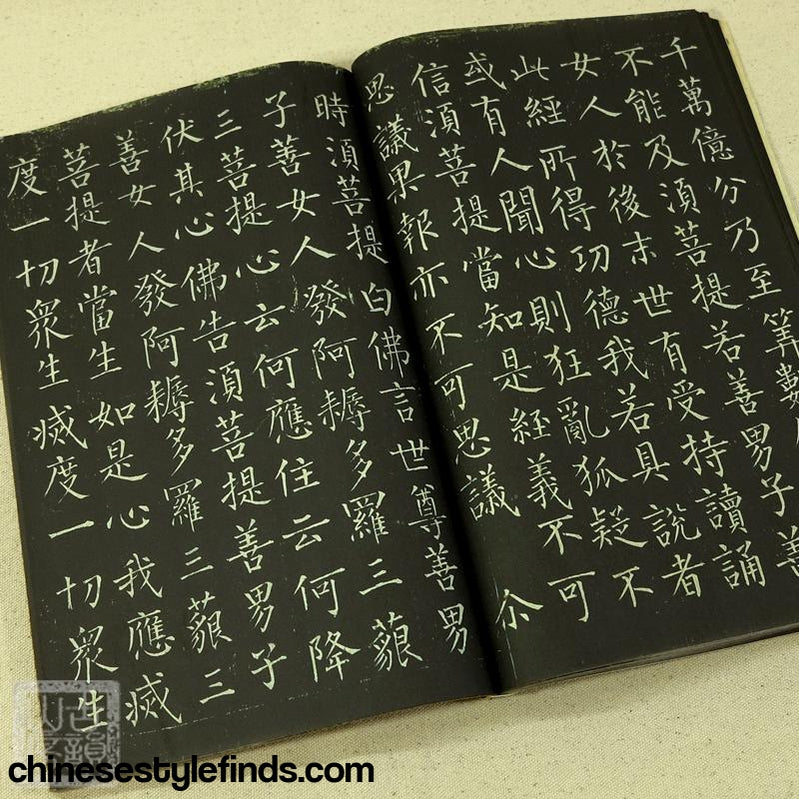 千萬億分乃至筭數
不能及須菩提若善男子善
女人於後末世有受持讀誦
此經所得功德我若具說者
或有人聞心則狂亂狐疑不
信須菩提當知是經義不可
思議果報亦不可思議 尒
時須菩提白佛言世尊善男
子善女人發阿耨多羅三藐
三菩提心云何應住云何降
伏其心佛告須菩提善男子
善女人發阿耨多羅三藐三
菩提者當生如是心我應滅
度一切衆生滅度一切衆生
chinesestylefinds.com